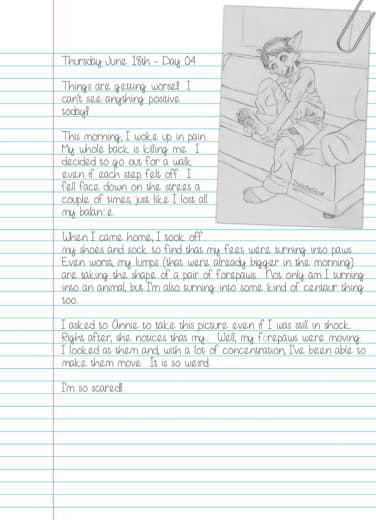 Thursday June 18th - Day 04
Things are getting worse! I
can't see anything positive
today!
This morning, I woke up in pain.
My whole back is killing me. I
decided to go out for a walk,
even if each step felt off. I
fell face down on the streets a
couple of times, just like I lost all
my balance.
When I came home, I took off
my shoes and sock to find that my feet were turning into paws.
Even worst, my lumps (that were already bigger in the morning)
are taking the shape of a pair of forepaws. Not only am I turning
into an animal, but I'm also turning into some kind of centaur thing
too...
I asked to Annie to take this picture even if I was still in shock.
Right after, she notices that my... Well, my forepaws were moving.
I looked at them and, with a lot of concentration, I've been able to
make them move. It is so weird.
I'm so scared!!